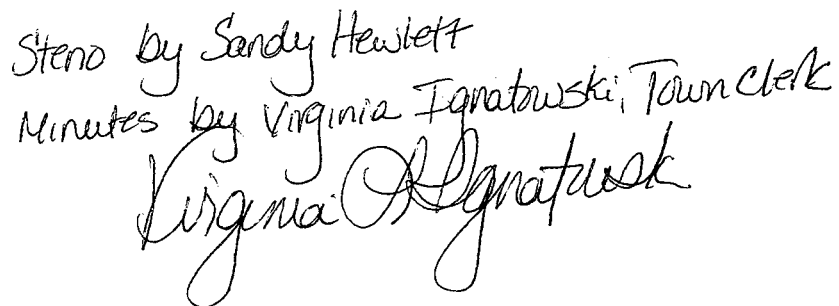 Steno by Sandy Hewlett
Minutes by Virginia Ignatowski, Town Clerk
Virginia Ignatowsk